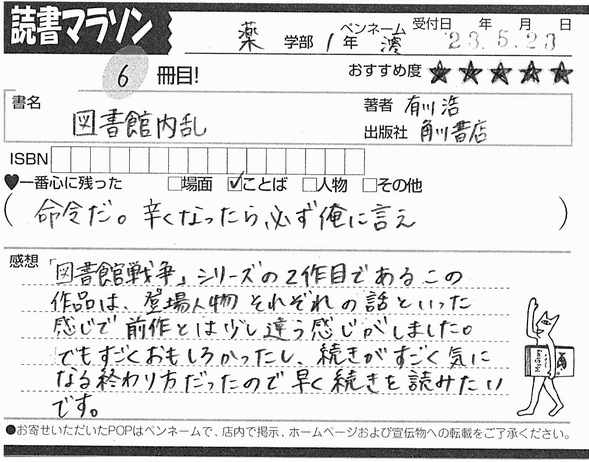 読書マラソン
薬 学部 1年 ペンネーム 澪 受付日 年 月 日
23.5.23
6 冊目! おすすめ度 ★★★★★
書名 図書館内乱
著者 有川浩
出版社 角川書店
ISBN
♥一番心に残った □場面 ☑ことば □人物 □その他
(命令だ。辛くなったら、必ず俺に言え)
感想 「図書館戦争」シリーズの2作目であるこの
作品は、登場人物それぞれの話といった
感じで前作とは少し違う感じがしました。
でもすごくおもしろかったし、続きがすごく気に
なる終わり方だったので早く続きを読みたい
です。
●お寄せいただいたPOPはペンネームで、店内で掲示、ホームページおよび宣伝物への転載をご了承ください。